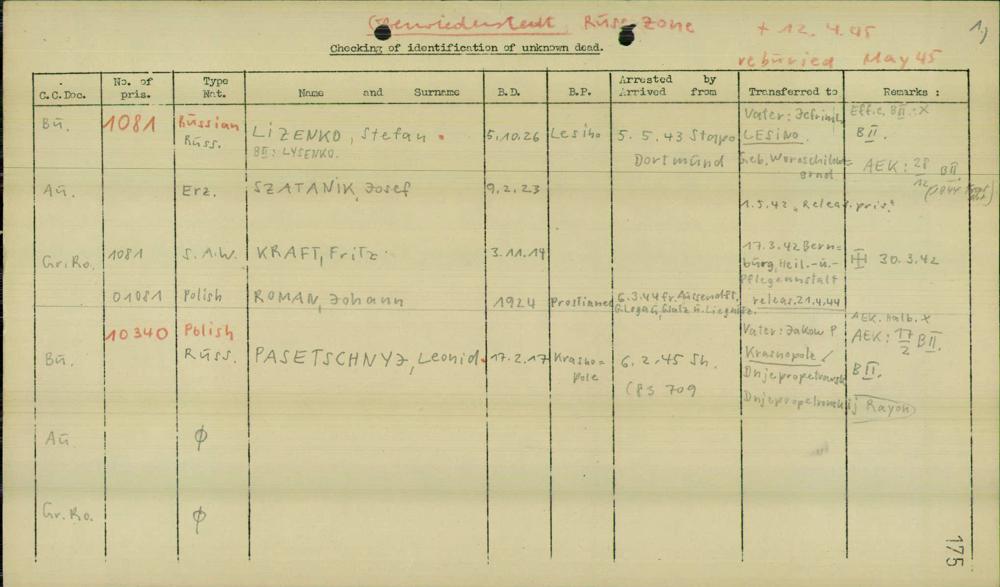 Oberwiederstedt, Russ Zone + 12.4.45 1)
Checking of identification of unknown dead. reburied May 45
C.C.Doc. No. of pris. Type Nat. Name and Surname B.D. B.P. Arrested by Arrived from Transferred to Remarks :
Bu. 1081 Russian Russ. LIZENKO, Stefan. 5.10.26 Lesino 5.5.43 Stapo Dortmund Vater: LESINO. Eff.c. BII.-X
BII: LYSENKO. Geb. Woroschilow= grad BII.
AEK: 28/12 BII.
Au. Erz. SZATANIK, Josef 9.2.23
1.5.42 "Releas. pris."
Gr.Ro. 1081 S.A.W. KRAFT, Fritz 3.11.14 17.3.42 Bern= burg, Heil.-u.- Pflegeanstalt 30.3.42
01081 Polish ROMAN, Johann 1924 6.3.44 fr. Aussenkdt. Glatz releas. 21.4.44
10340 Polish
Bu. Russ. PASETSCHNYJ, Leonid. 17.2.17 Krasno= pole 6.2.45 Sh. (83 709 Vater: Jakow P. Krasnopole/ Dnjepropetrowsk AEK. Halb. X
AEK: 17/2 BII.
BII.
Dnjepropetrowskij Rayon
Au. ϕ
Gr.Ro. ϕ
175